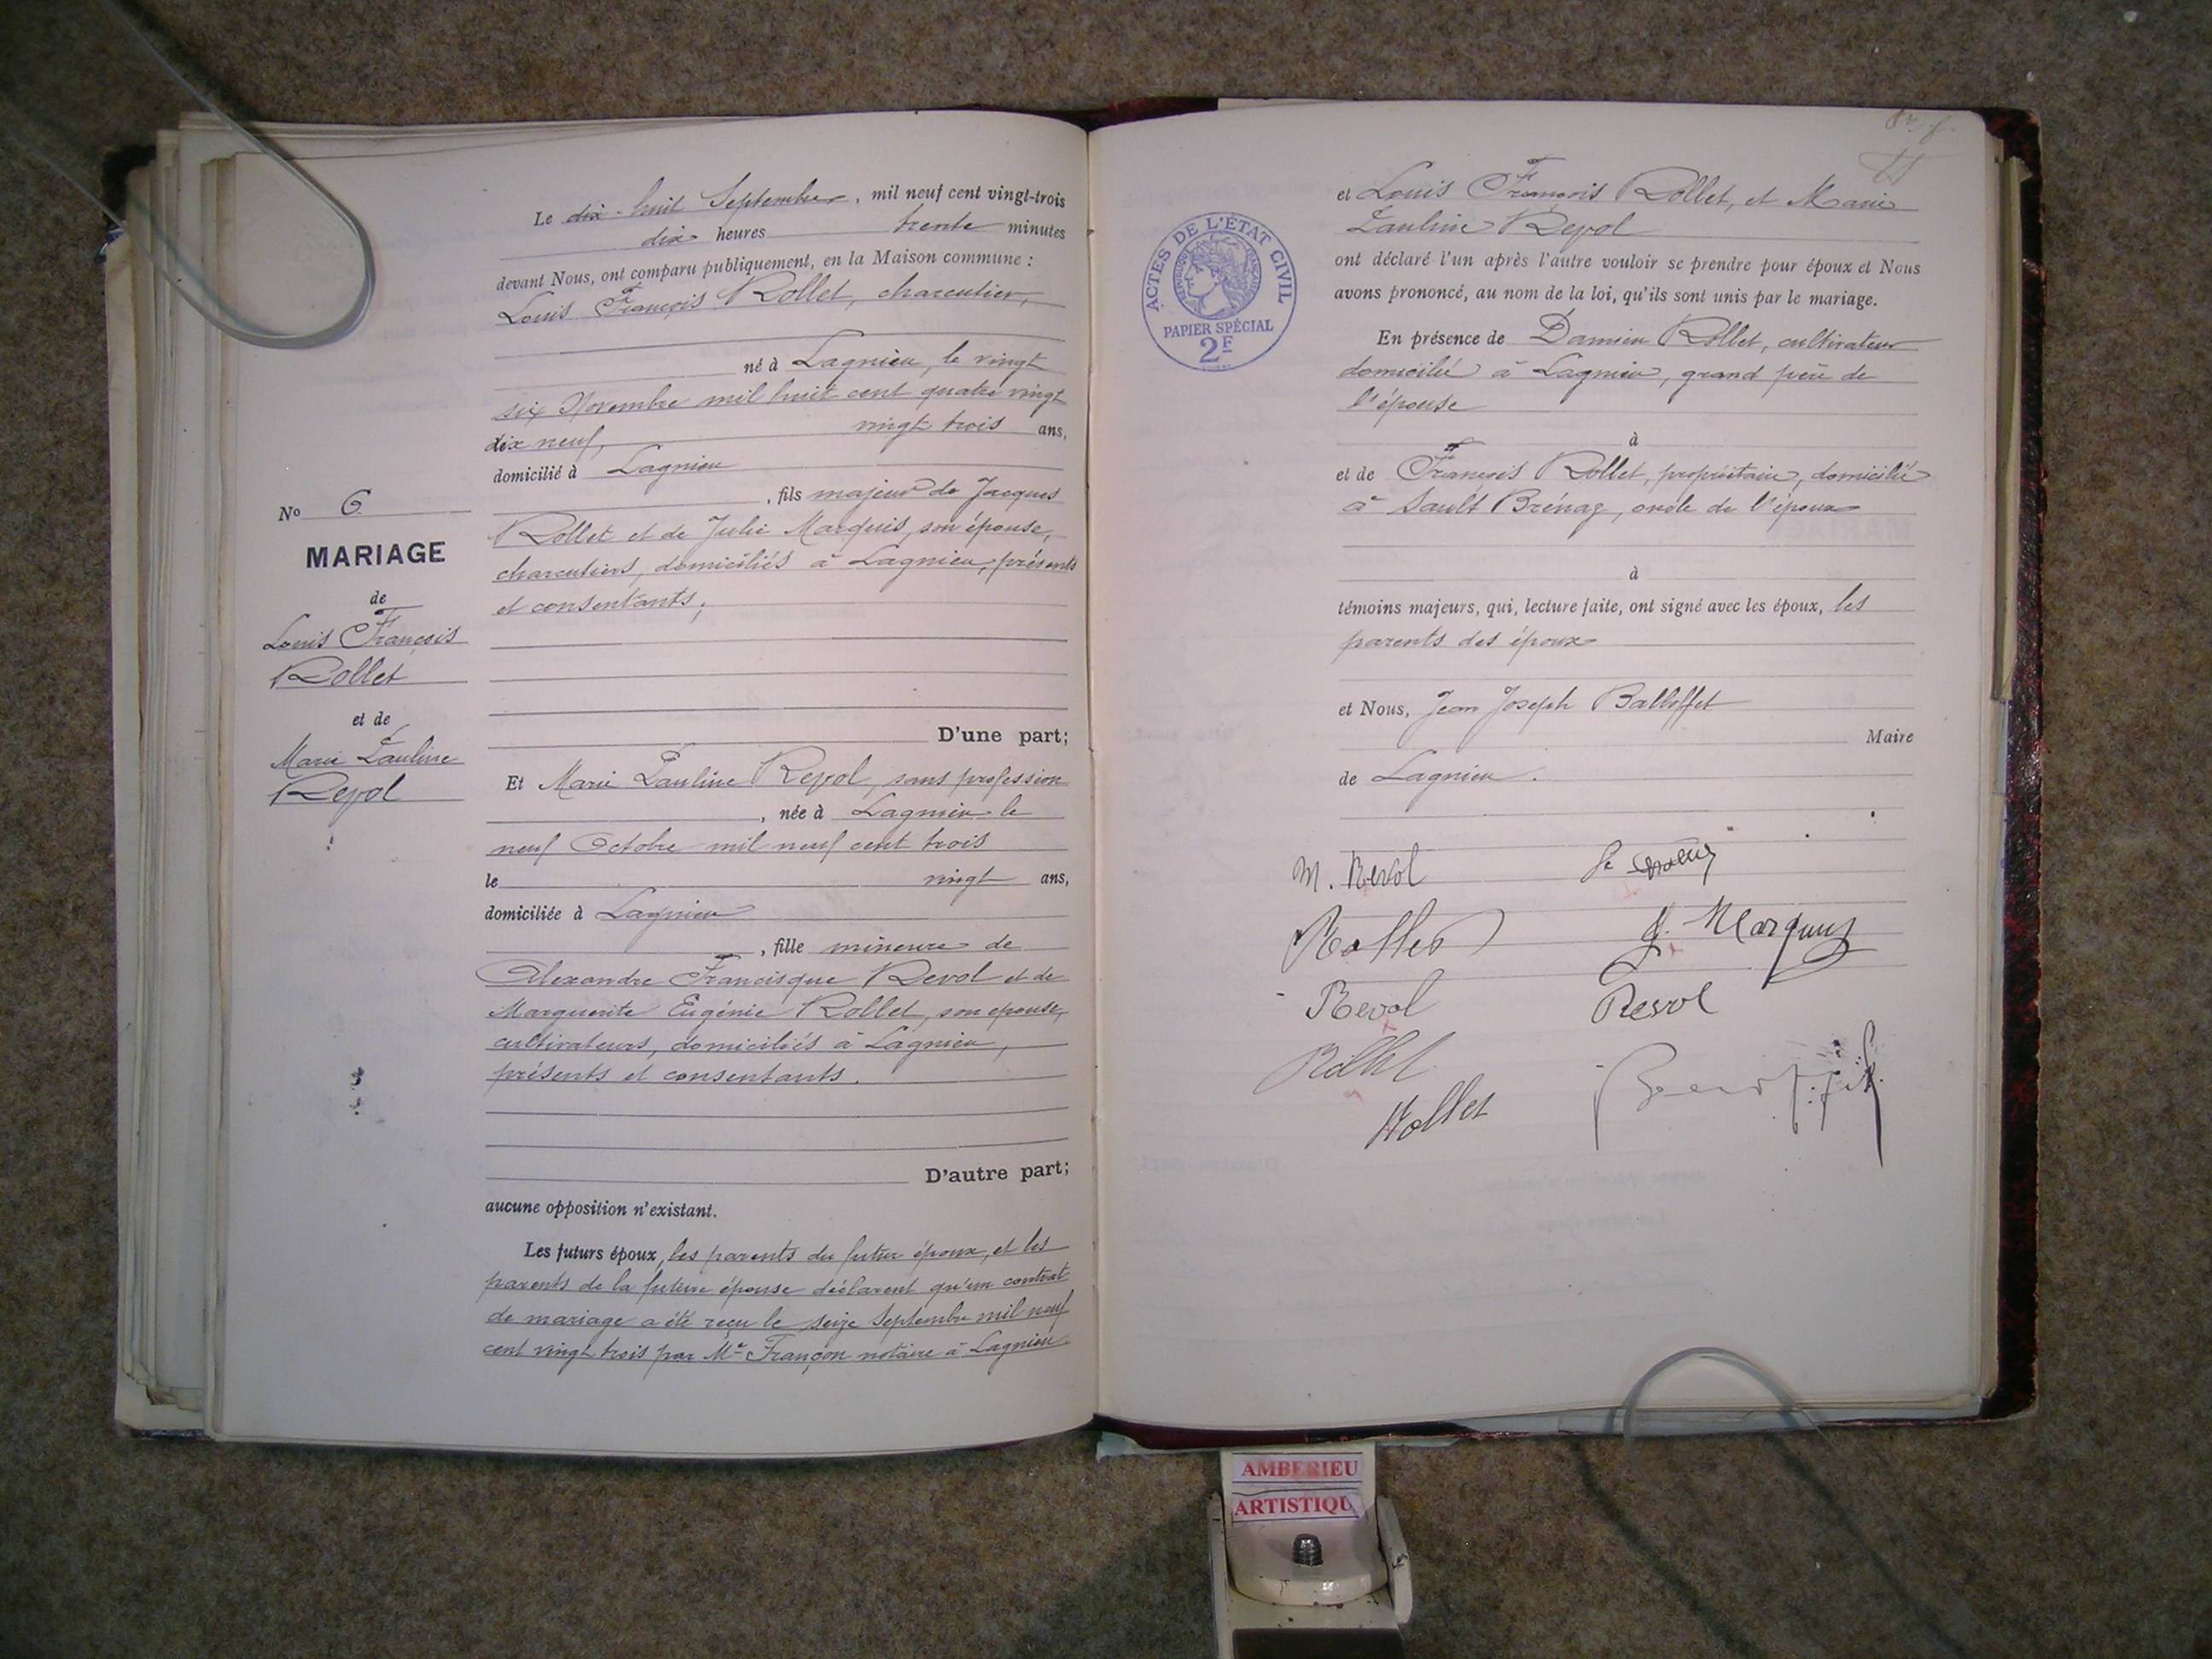 Le dix-huit Septembre, mil neuf cent vingt-trois
dix heures trente minutes
devant Nous, ont comparu publiquement, en la Maison commune :
Louis François Rollet, charcutier,
né à Lagnieu, le vingt
six Novembre mil huit cent quatre vingt
dix neuf, vingt trois ans,
domicilié à Lagnieu
, fils majeur de Jacques
Rollet et de Julie Marquis, son épouse,
charcutiers, domiciliés à Lagnieu, présents
et consentants;
No 6
MARIAGE
de
Louis François
Rollet
et de
Marie Pauline
Revol
D'une part;
Et Marie Pauline Revol, sans profession
, née à Lagnieu le
neuf Octobre mil neuf cent trois
le vingt ans,
domiciliée à Lagnieu
, fille mineure de
Alexandre Francisque Revol et de
Marguerite Eugénie Rollet, son epouse,
cultivateurs, domiciliés à Lagnieu,
présents et consentants.
D'autre part;
aucune opposition n'existant.
Les futurs époux, les parents du futur époux, et les
parents de la future épouse déclarent qu'un contrat
de mariage a été reçu le seize Septembre mil neuf
cent vingt trois par Me Françon notaire à Lagnieu
et Louis François Rollet, et Marie
Pauline Revol
ont déclaré l'un après l'autre vouloir se prendre pour époux et Nous
avons prononcé, au nom de la loi, qu'ils sont unis par le mariage.
En présence de Damien Rollet, cultivateur
domicilié à Lagnieu, grand père de
l'épouse
à
et de François Rollet, propriétaire, domicilié
à Sault Brénaz, oncle de l'époux
à
témoins majeurs, qui, lecture faite, ont signé avec les époux, les
parents des époux
et Nous, Jean Joseph Balloffet
Maire
de Lagnieu.
M. Revol
Rollet J. Marquis
Revol Revol
Rollet
Rollet
ACTES DE L'ÉTAT CIVIL
RÉPUBLIQUE FRANÇAISE
PAPIER SPÉCIAL
2F
AMBERIEU
ARTISTIQU